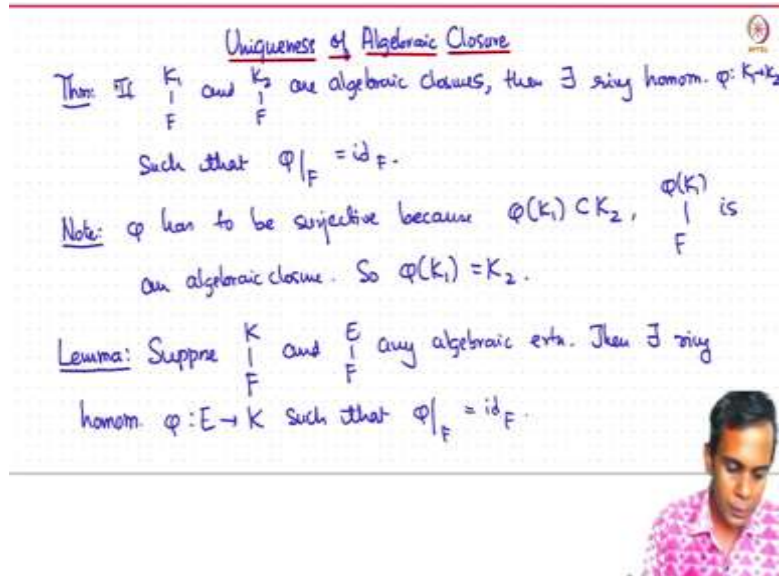 Uniqueness of Algebraic Closure
Thm: If K₁ | F and K₂ | F are algebraic closures, then ∃ ring homom. φ: K₁→K₂
Such that φ|_F = id_F.
Note: φ has to be surjective because φ(K₁) ⊂ K₂, φ(K₁) | F is
an algebraic closure. So φ(K₁) = K₂.
Lemma: Suppose K | F and E | F any algebraic extn. Then ∃ ring
homom. φ: E → K such that φ|_F = id_F.